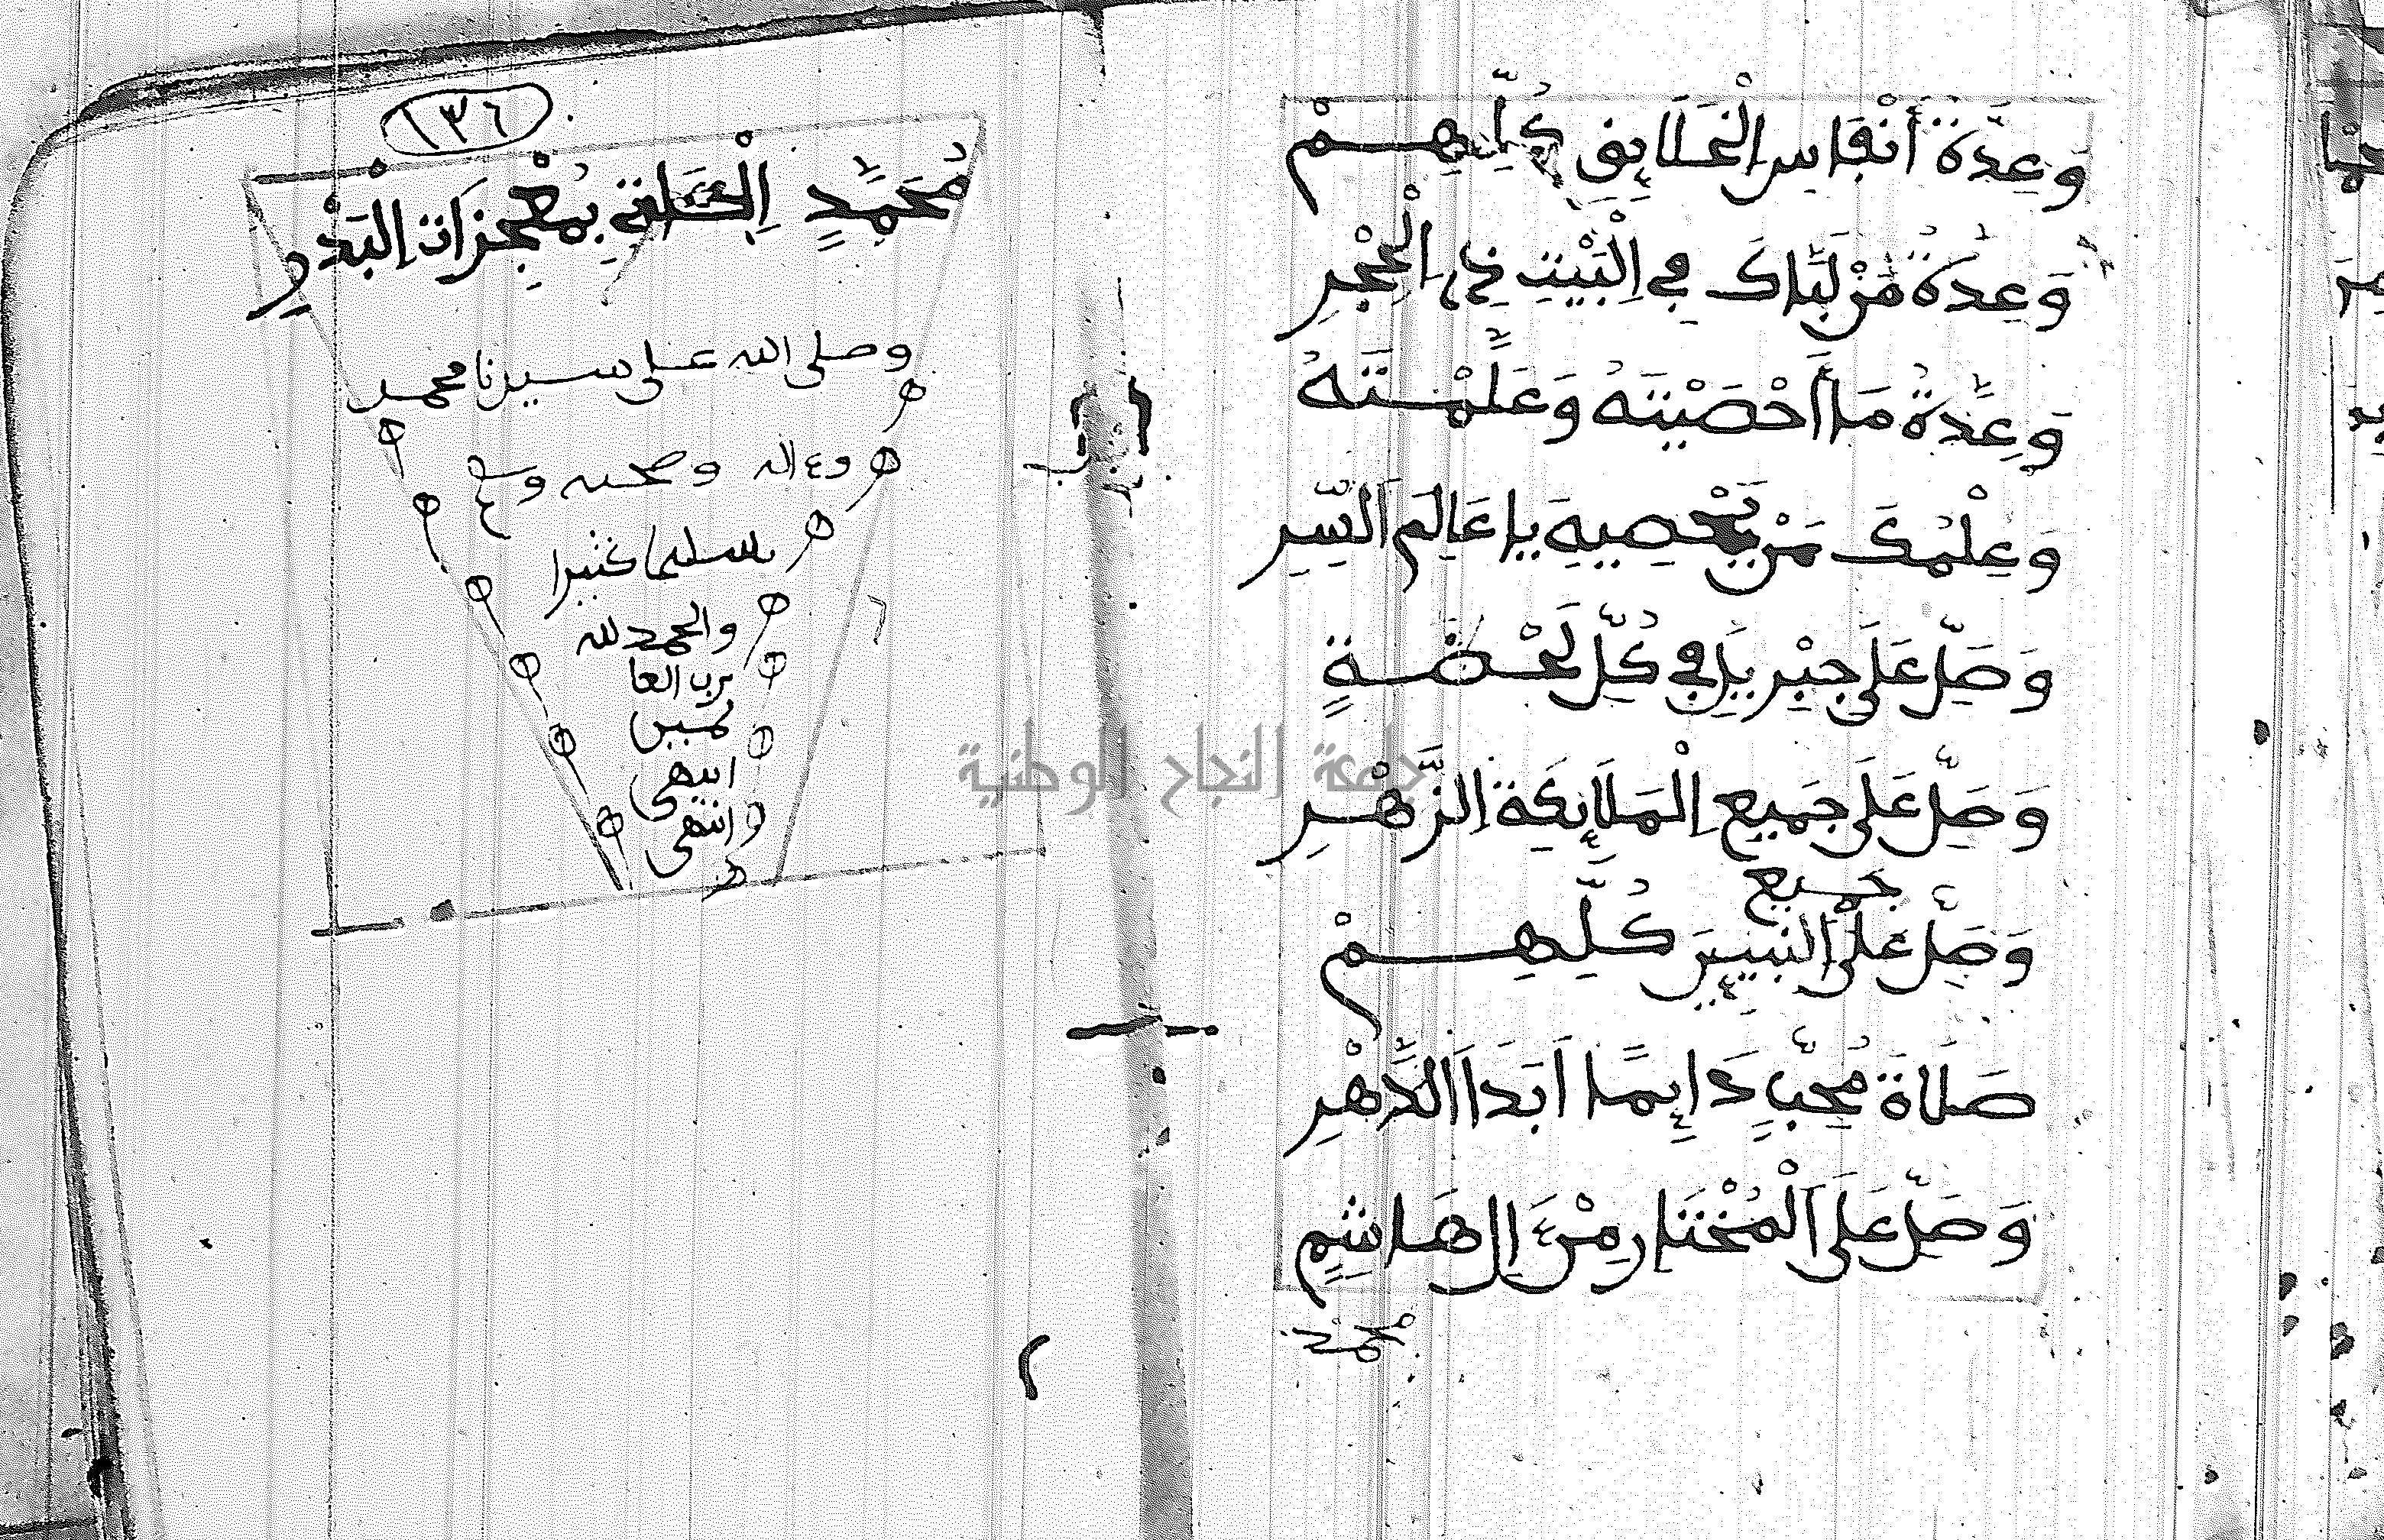 وَعِدَّةَ أَنْفَاسِ الْخَلَائِقِ كُلِّهِمْ
وَعِدَّةَ مَنْ لَبَّاكَ فِي الْبَيْتِ ذِي الْحِجْرِ
وَعِدَّةَ مَا أَحْصَيْتَهُ وَعَلِمْتَهُ
وَعِلْمُكَ مَنْ يُحْصِيهِ يَا عَالِمَ السِّرِّ
وَصَلِّ عَلَى جِبْرِيلَ فِي كُلِّ لَحْظَةٍ
وَصَلِّ عَلَى جَمِيعِ الْمَلَائِكَةِ الزُّهْرِ
جميع
وَصَلِّ عَلَى النَّبِيِّينَ كُلِّهِمْ
صَلَاةَ مُحِبٍّ دَائِمًا أَبَدَا الدَّهْرِ
وَصَلِّ عَلَى الْمُخْتَارِ مِنْ ءَالِ هَاشِمٍ
محمد
١٣٦
مُحَمَّدٍ بِمُعْجِزَاتِ الْبَدْرِ
وصلى الله على سيدنا محمد
وءاله وصحبه وسلم
تسليما كثيرا
والحمد لله
رب العا
لمين
انتهى
وانتهى
جامعة النجاح الوطنية